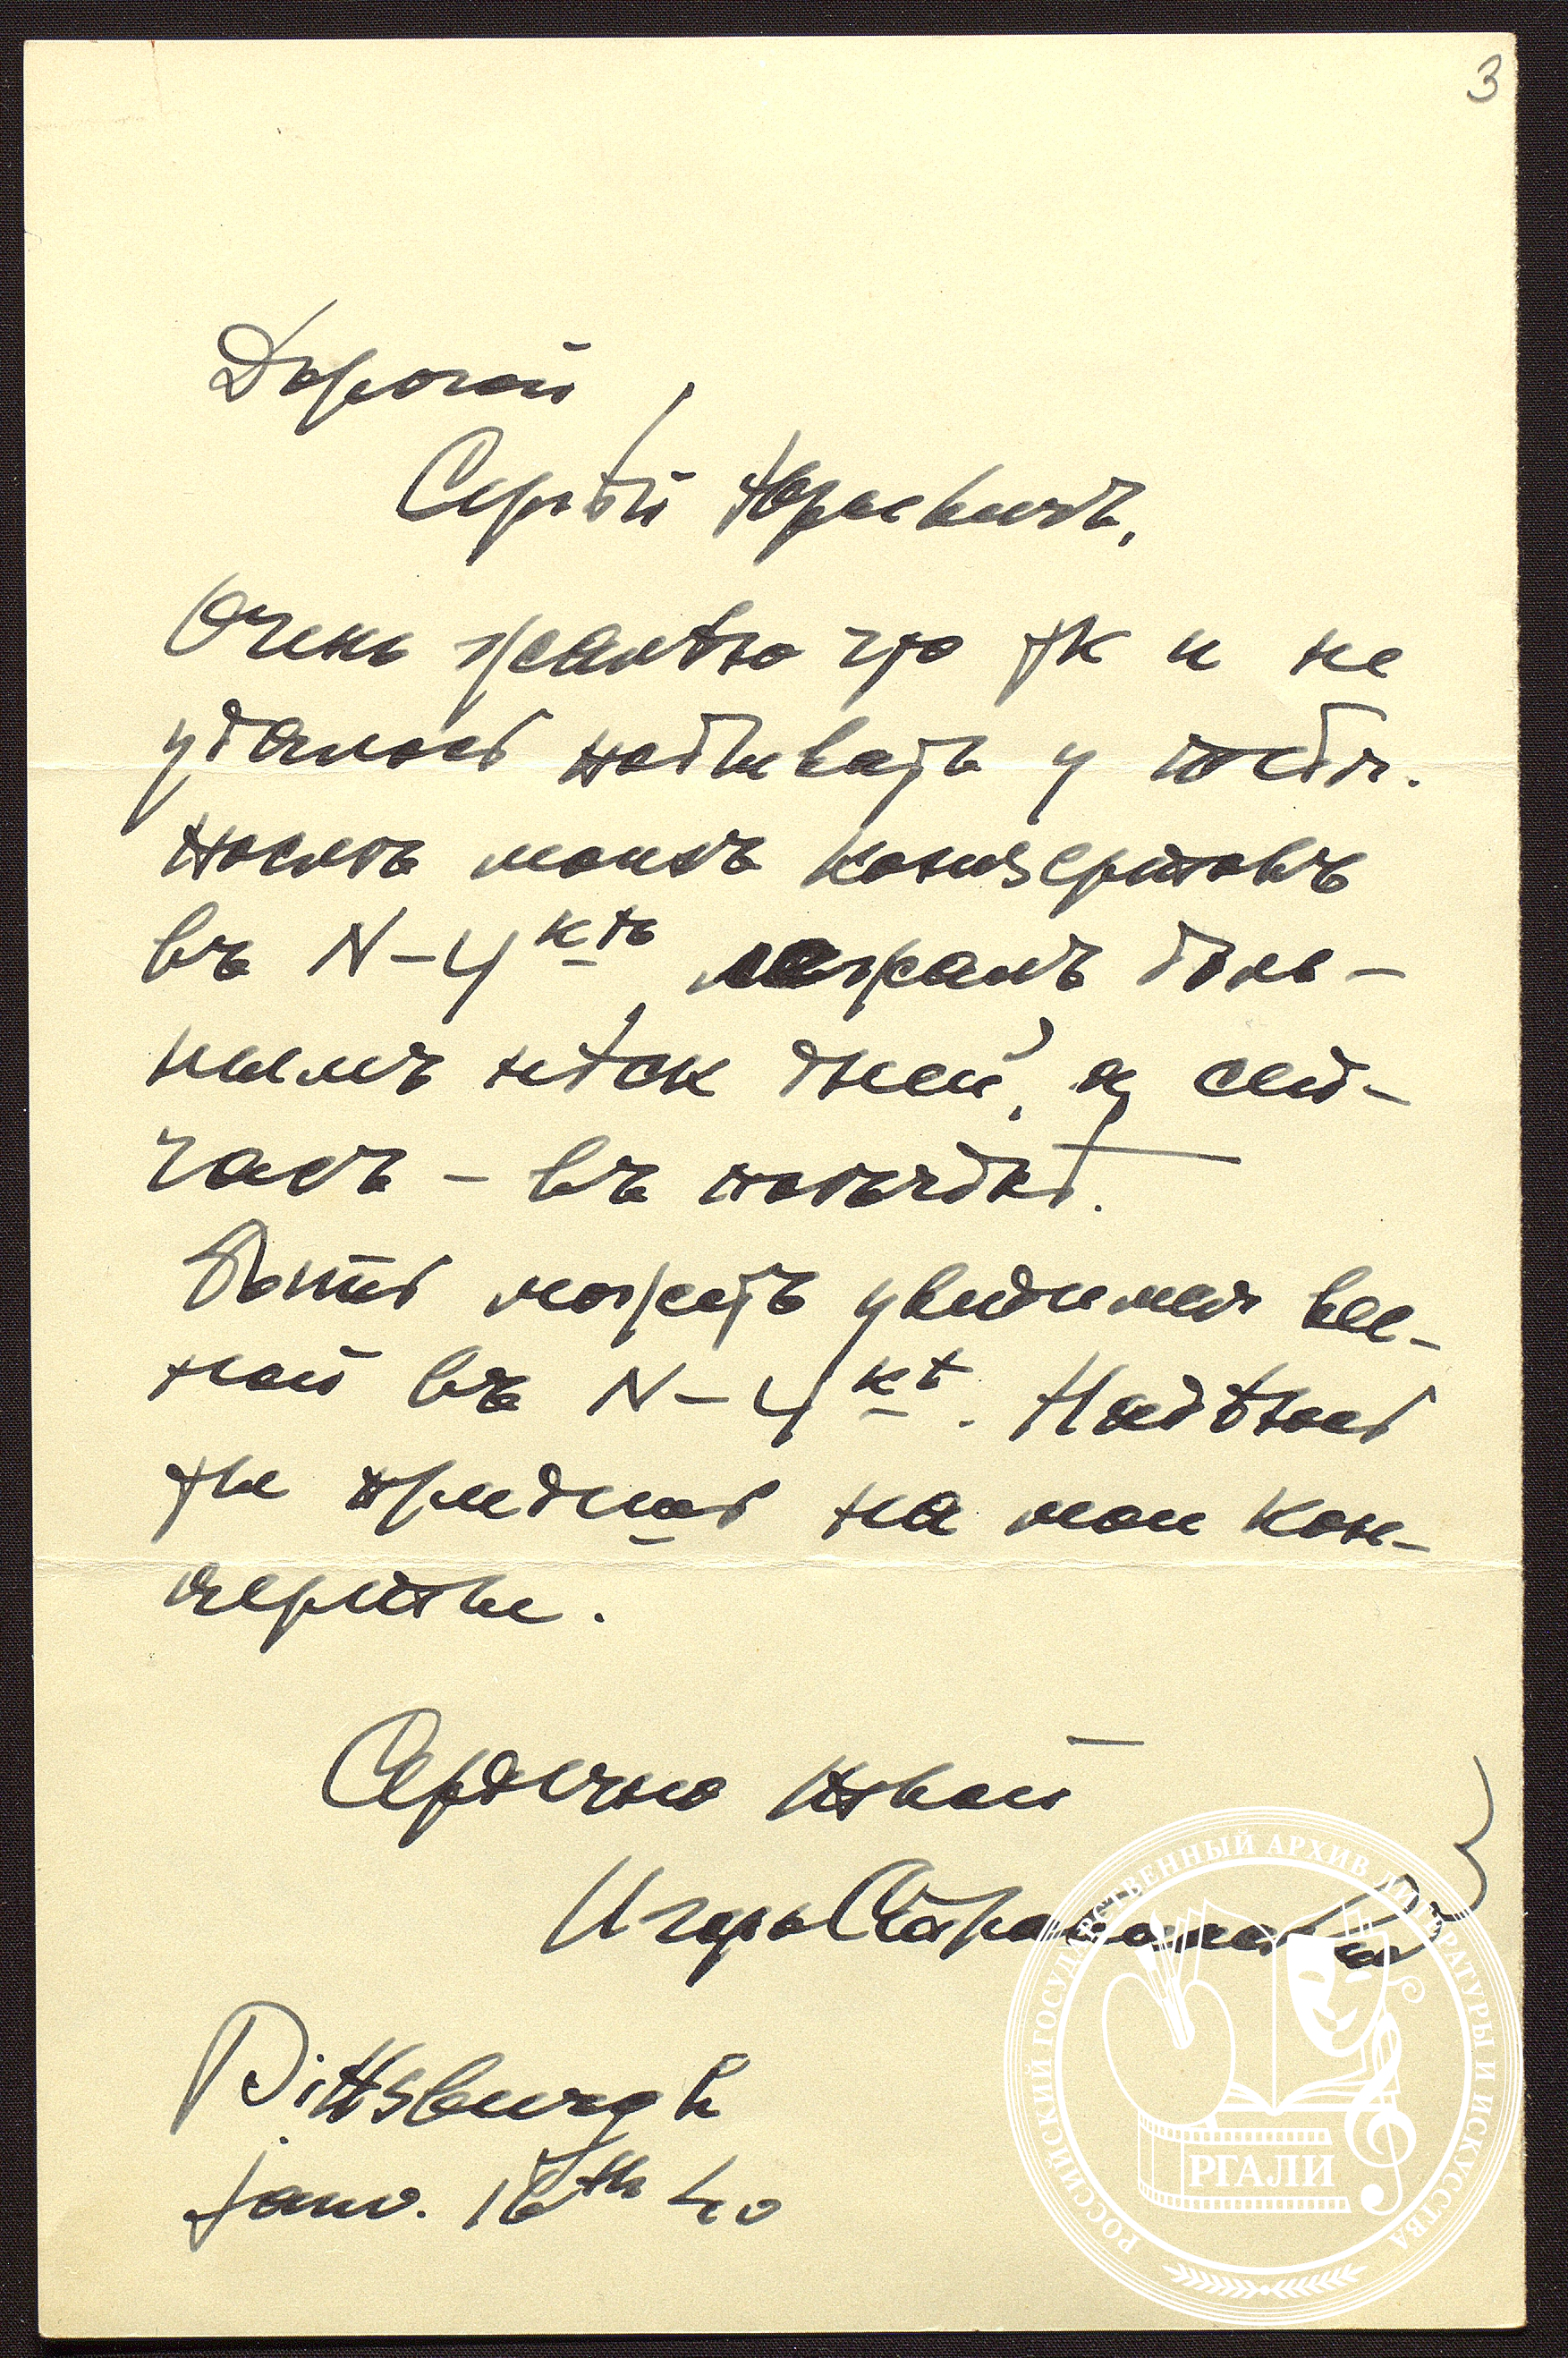 3
Дорогой,
Сергѣй Юрьевичъ,
Очень жалѣю что тк и не
удалось побывать у тебя.
послѣ моихъ концертовъ
въ N-Y<sup>кѣ</sup> лежалъ боль-
нымъ нѣск дней, а сей-
часъ – въ поѣздкѣ.
Быть можетъ увидимся вес-
ной въ N-Y<sup>кѣ</sup>. Надѣюсь
ты придешь на мои кон-
церты.
Сердечно твой
Игорь Стравинский
Pittsburgh
Janv. 16<sup>th</sup> 40
РОССИЙСКИЙ ГОСУДАРСТВЕННЫЙ АРХИВ ЛИТЕРАТУРЫ И ИСКУССТВА
РГАЛИ